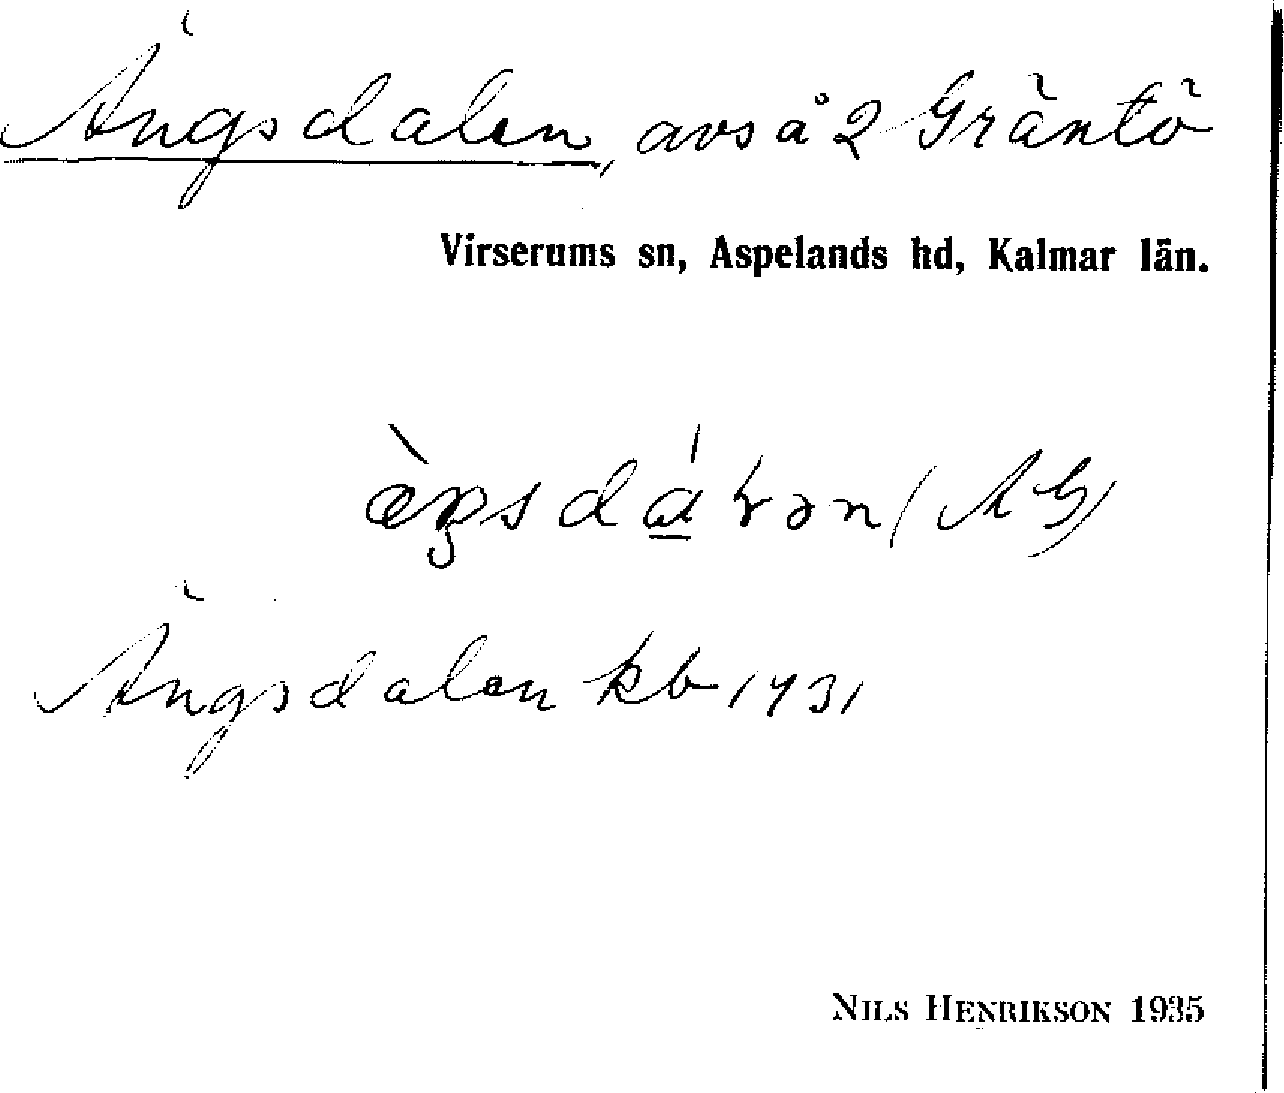 Ängsdalen, avs å 2 Gräntö
Virserums sn, Aspelands hd, Kalmar län.
(AG)
Ängsdalen kb 1931
NILS HENRIKSON 1935